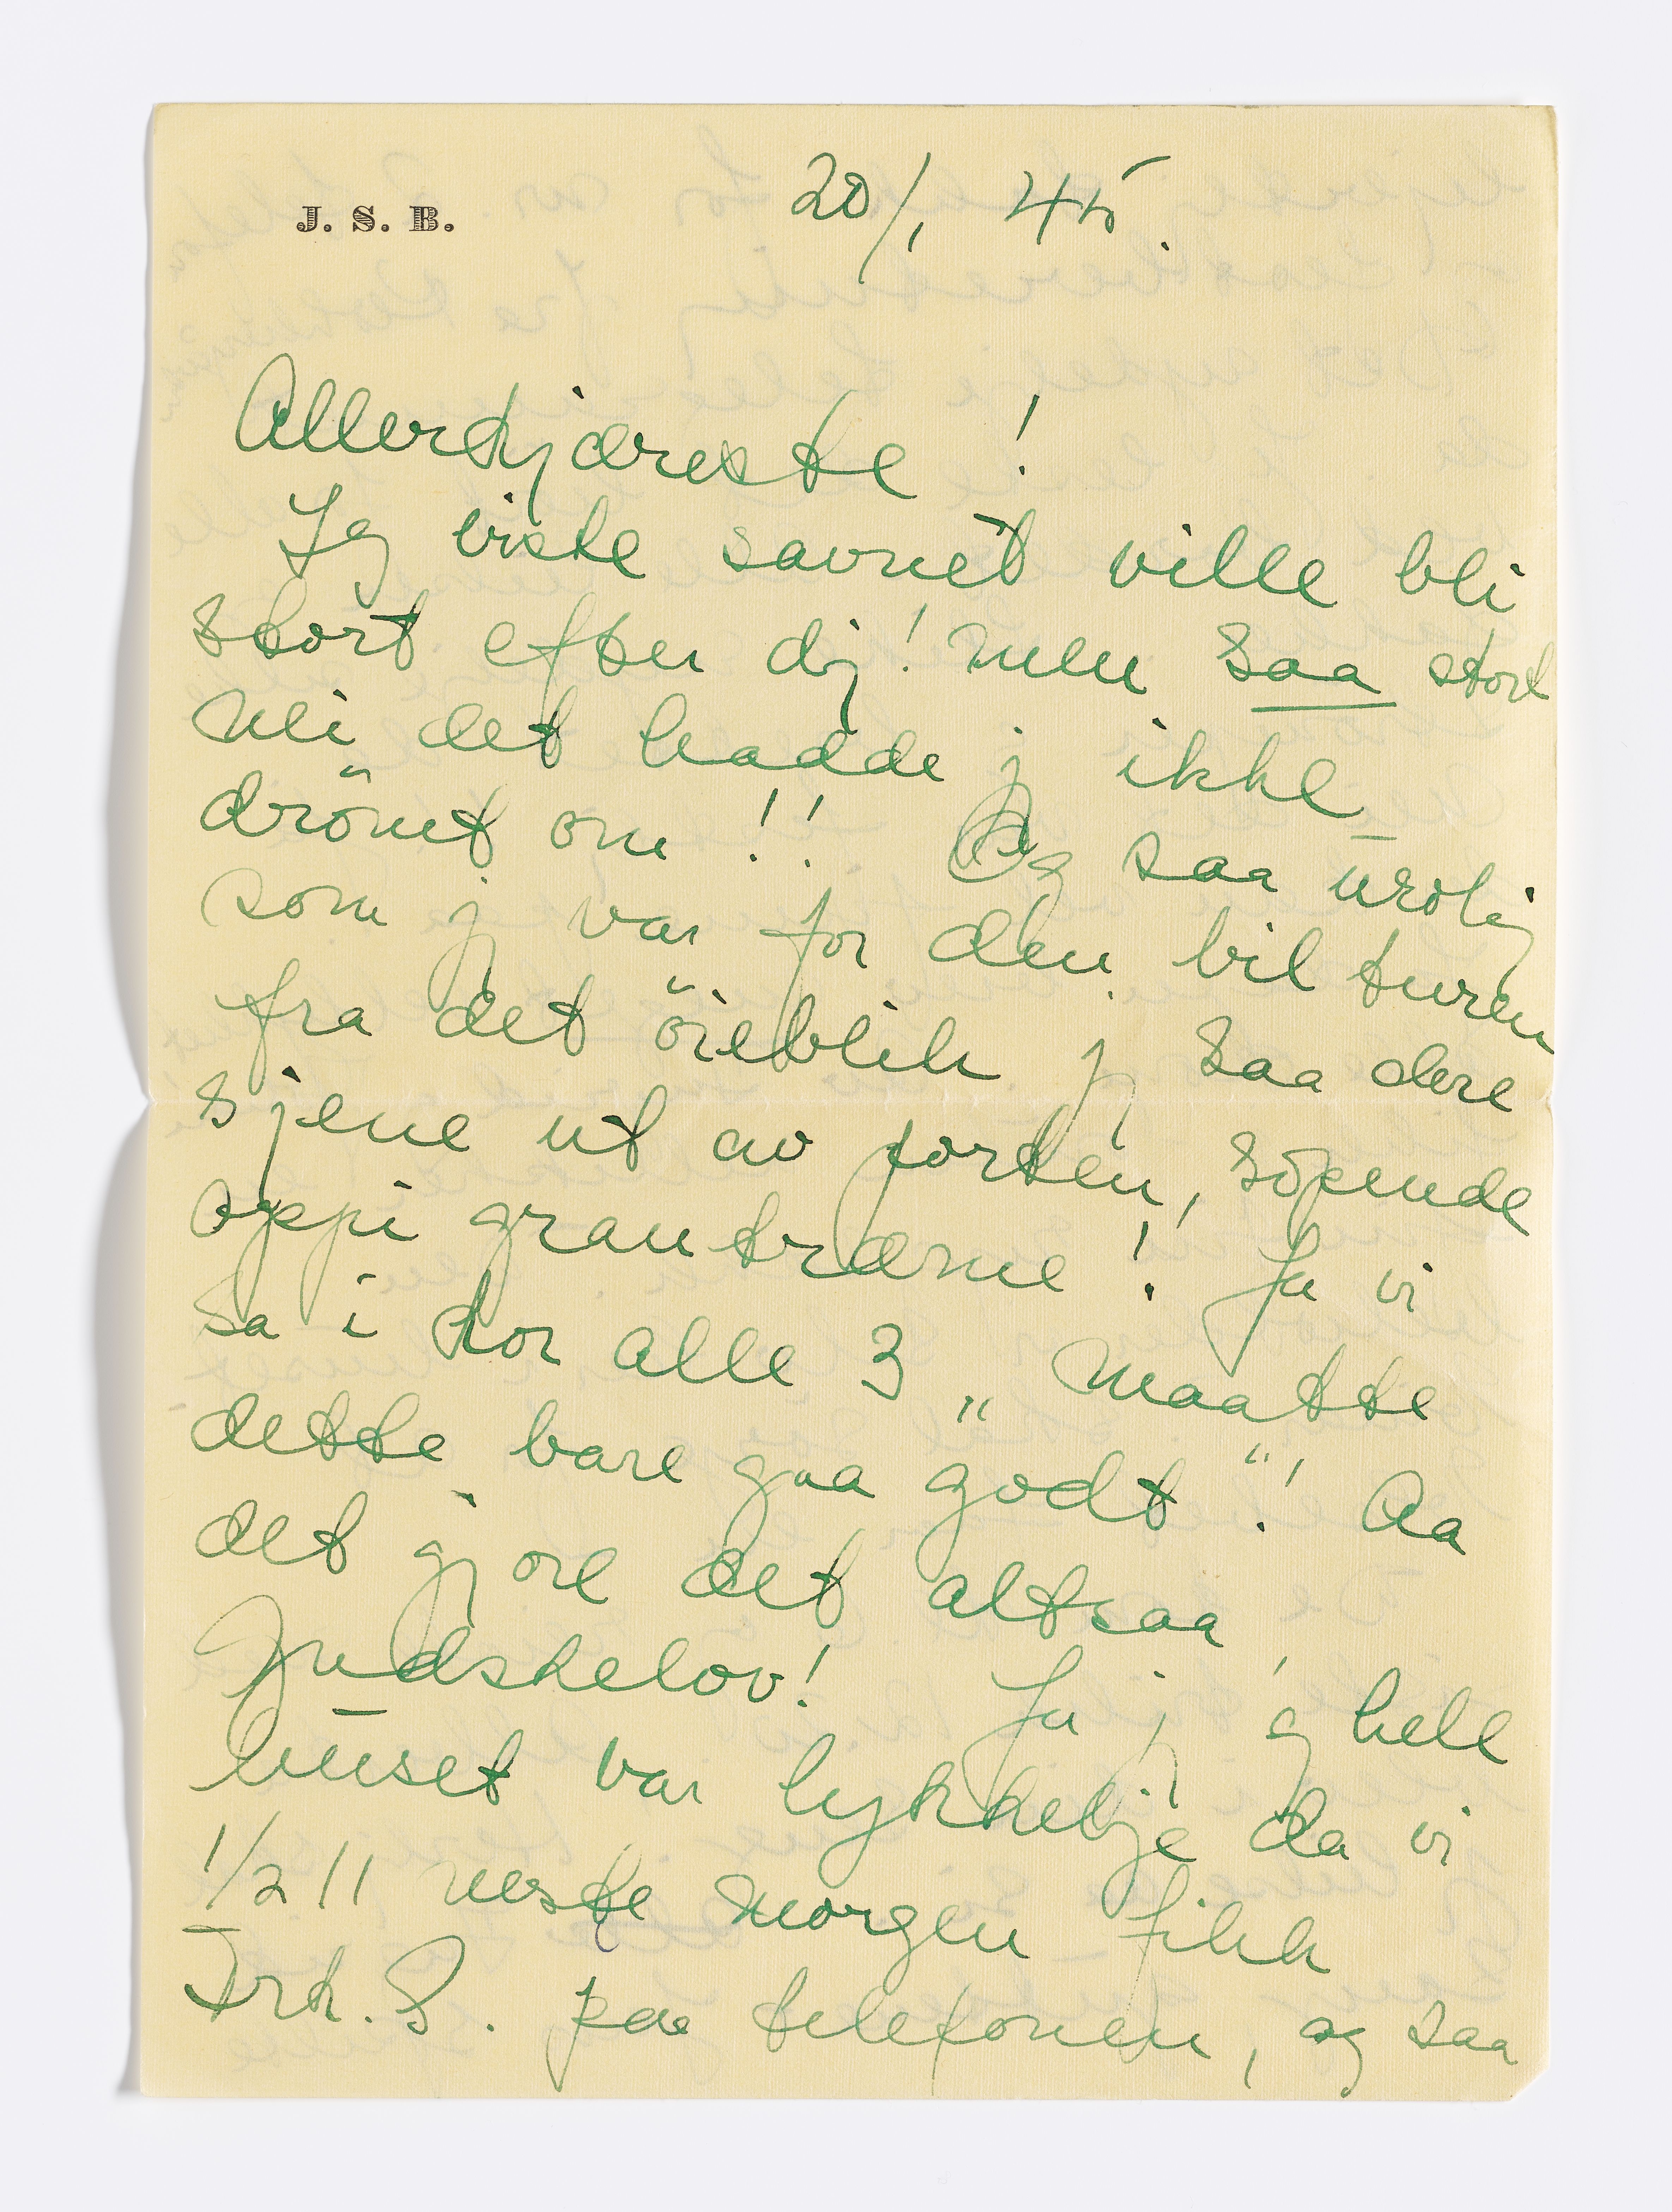 J. S. B.
20/1 45.
Allerkjæreste!
Jeg viste savnet ville bli
stort efter dij! men saa stort
nei det hadde j ikke
drömt om!! Og saa urolig
som j var for den bil turen
fra det öieblik j saa dere
sjene ut av porten, söpende
oppi grantræerne! Ja vi
sa i kor alle 3 „maatte
dette bare gaa godt“! Aa
det gjore det altsaa,
Gudskelov! Ja j og hele
huset var lykkelije da vi
1/2 11 neste morgen fikk
Frk. S. paa telefonen, og saa